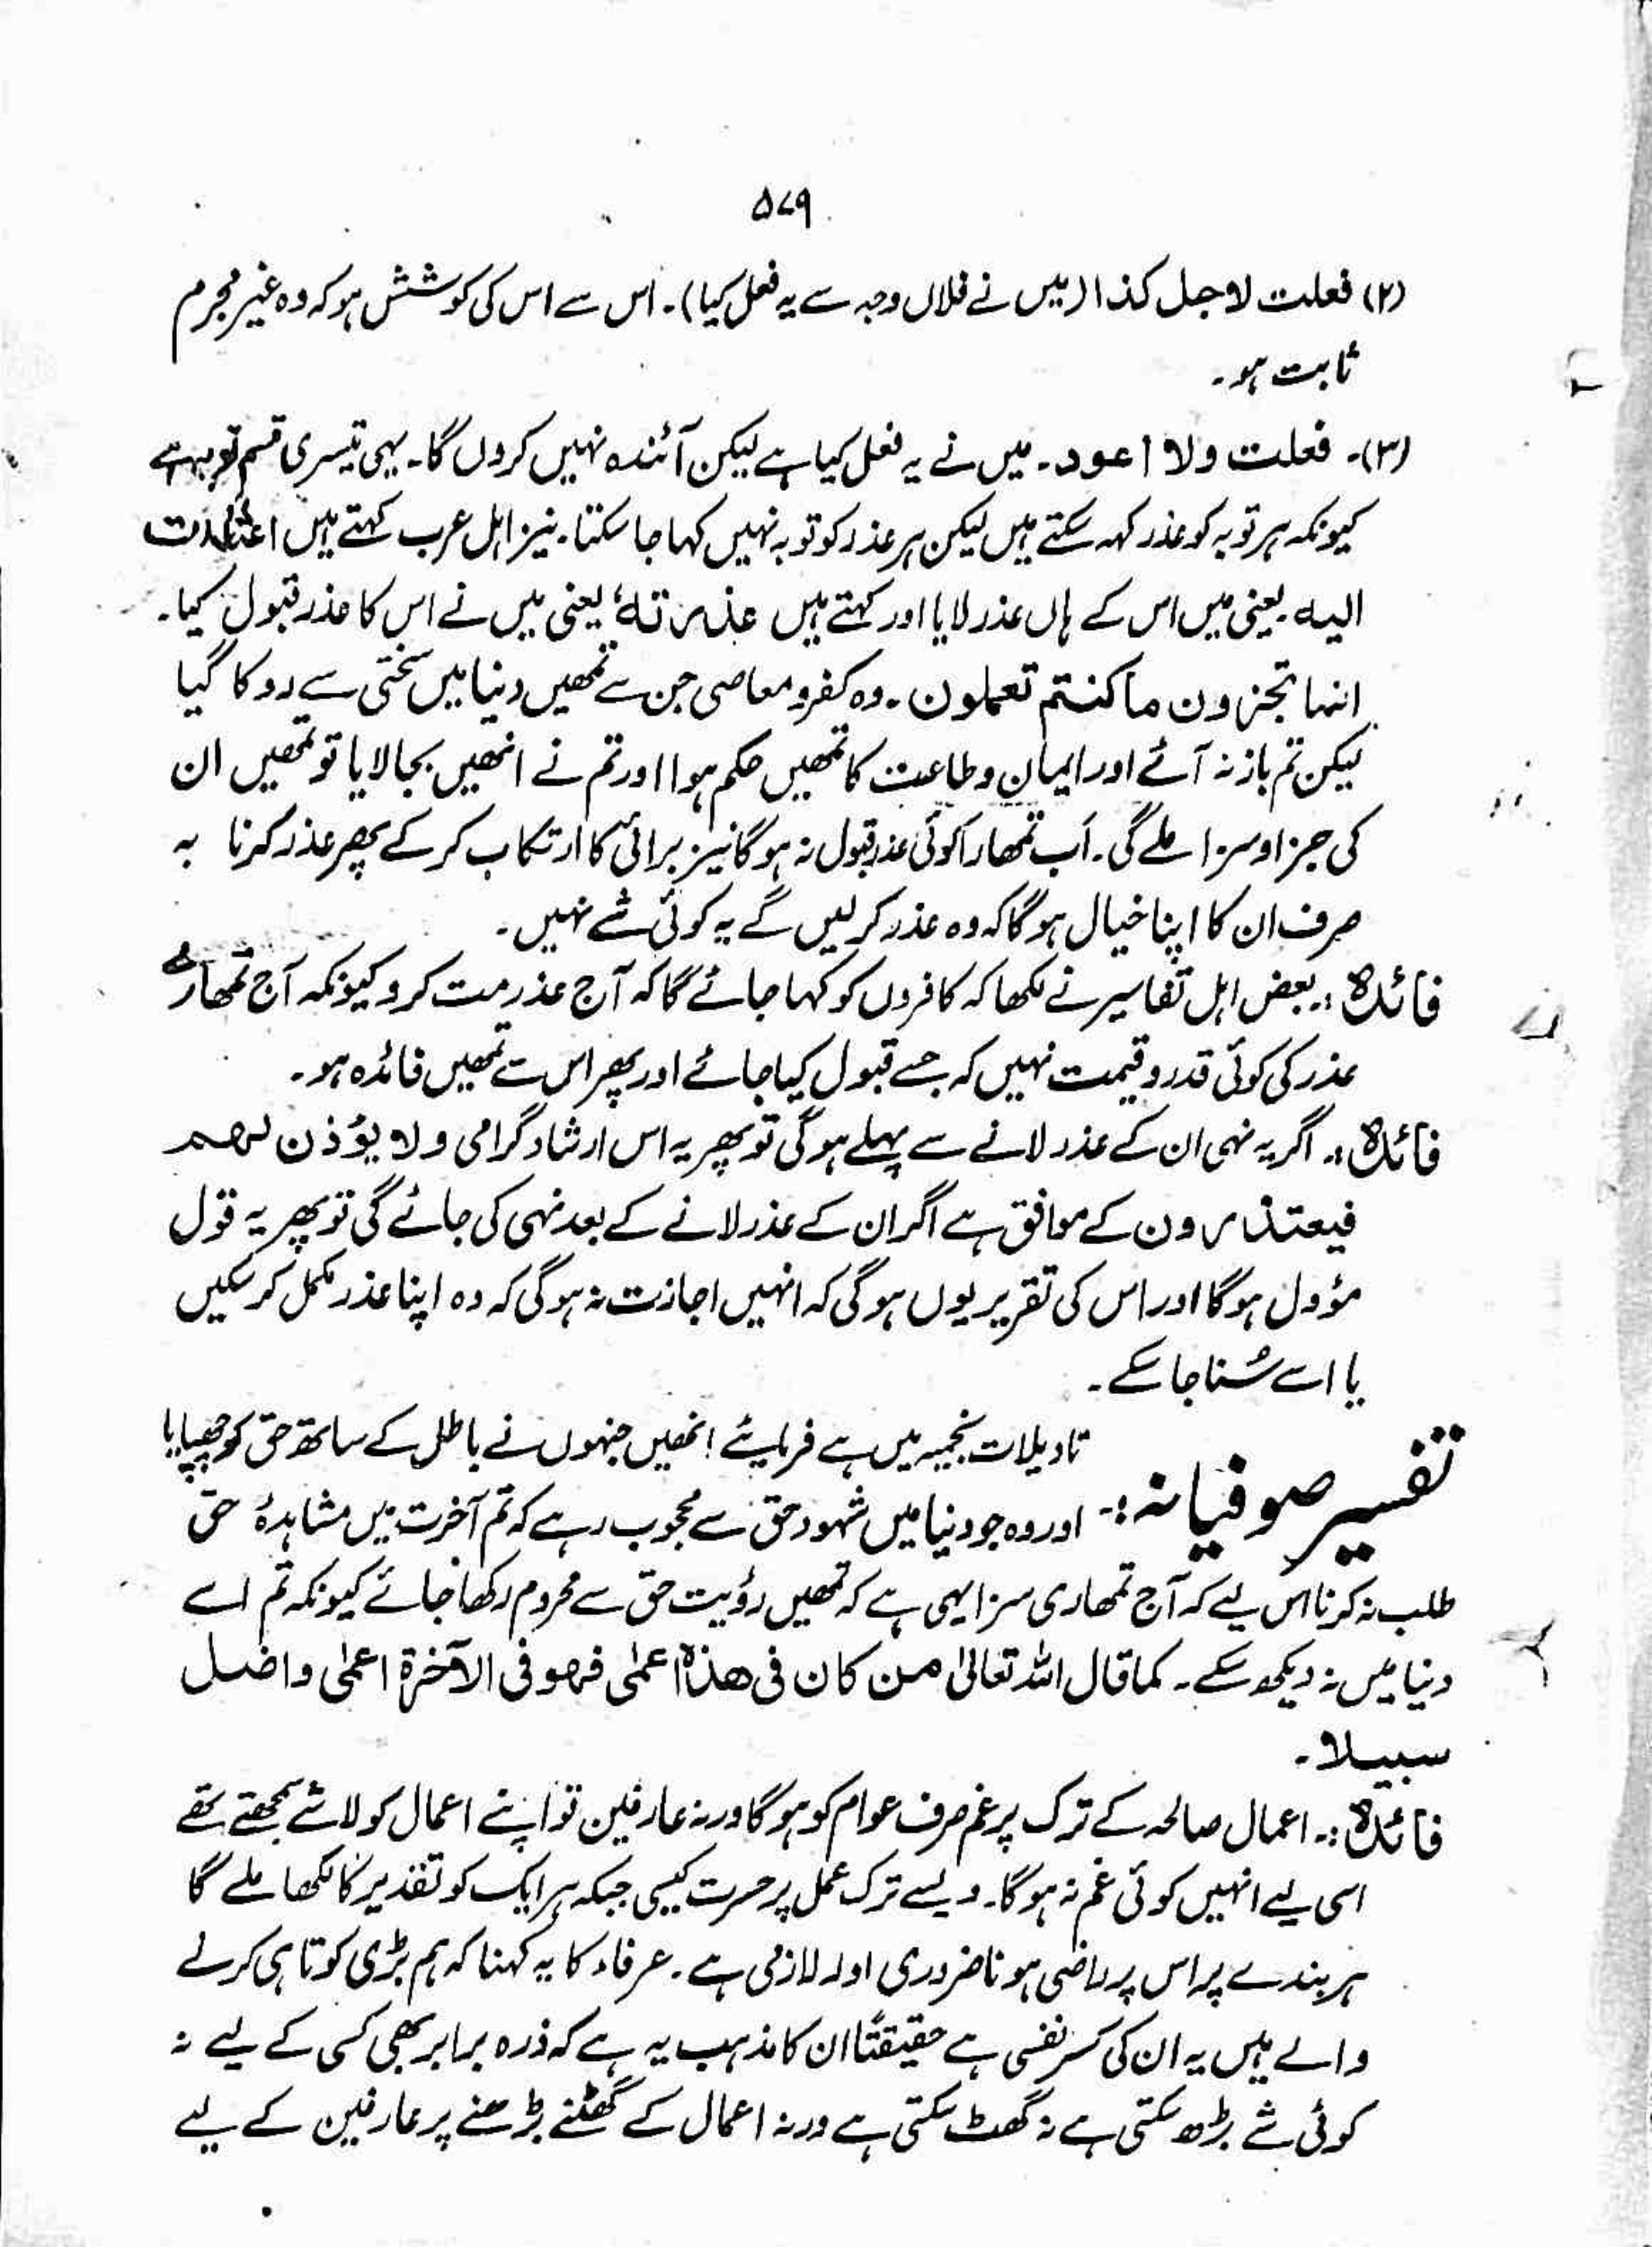 ۵۷۹
(۲) فعلت لاجل کذا (میں نے فلاں وجہ سے یہ فعل کیا)۔ اس سے اس کی کوشش ہو کہ وہ غیر مجرم
ثابت ہو۔
(۳)۔ فعلت ولا اعود۔ میں نے یہ فعل کیا ہے لیکن آئندہ نہیں کروں گا۔ یہی تیسری قسم توبہ ہے
کیونکہ ہر توبہ کو عذر کہہ سکتے ہیں لیکن ہر عذر کو توبہ نہیں کہا جا سکتا۔ نیز اہل عرب کہتے ہیں اعتذرت
الیہ یعنی میں اس کے ہاں عذر لایا اور کہتے ہیں عذرتہٗ یعنی میں نے اس کا عذر قبول کیا۔
انما تجزون ماکنتم تعملون۔ وہ کفر و معاصی جن سے تمھیں دنیا میں سختی سے روکا گیا
لیکن تم باز نہ آئے اور ایمان و طاعت کا تمھیں حکم ہوا اور تم نے انھیں بجا لایا تو تمھیں ان
کی جزا و سزا ملے گی۔ اب تمھارا کوئی عذر قبول نہ ہو گا نیز برائی کا ارتکاب کر کے پھر عذر کرنا یہ
صرف ان کا اپنا خیال ہو گا کہ وہ عذر کر لیں گے یہ کوئی شے نہیں۔
فائدہ :۔ بعض اہل تفاسیر نے لکھا کہ کافروں کو کہا جائے گا کہ آج عذر مت کرو کیونکہ آج تمھارے
عذر کی کوئی قدر و قیمت نہیں کہ جسے قبول کیا جائے اور پھر اس سے تمھیں فائدہ ہو۔
فائدہ :۔ اگر یہ نہی ان کے عذر لانے سے پہلے ہو گی تو پھر یہ اس ارشاد گرامی ولا یؤذن لھم
فیعتذرون کے موافق ہے اگر ان کے عذر لانے کے بعد نہی کی جائے گی تو پھر یہ قول
مؤول ہو گا اور اس کی تقریر یوں ہو گی کہ انہیں اجازت نہ ہو گی کہ وہ اپنا عذر مکمل کر سکیں
یا اسے سُنا جا سکے۔
تاویلات نجمیہ میں ہے فرمایئے انھیں جنہوں نے باطل کے ساتھ حق کو چھپایا
تفسیر صوفیانہ :۔ اور وہ جو دنیا میں شہود حق سے محجوب رہے کہ تم آخرت میں مشاہدۂ حق
طلب نہ کرنا اس لیے کہ آج تمھاری سزا یہی ہے کہ تمھیں رؤیت حق سے محروم رکھا جائے کیونکہ تم اسے
دنیا میں نہ دیکھ سکے۔ کما قال اللہ تعالیٰ من کان فی ھذہ اعمٰی فھو فی الآخرۃ اعمٰی واضل
سبیلا۔
فائدہ :۔ اعمال صالحہ کے ترک پر غم صرف عوام کو ہو گا ورنہ عارفین تو اپنے اعمال کو لاشے سمجھتے تھے
اسی لیے انہیں کوئی غم نہ ہو گا۔ ویسے ترک عمل پر حسرت کیسی جبکہ ہر ایک کو تقدیر کا لکھا ملے گا
ہر بندے پر اس پر راضی ہونا ضروری اور لازمی ہے۔ عرفاء کا یہ کہنا کہ ہم بڑی کوتاہی کرنے
والے ہیں یہ ان کی کسر نفسی ہے حقیقتًا ان کا مذہب یہ ہے کہ ذرہ برابر بھی کسی کے لیے نہ
کوئی شے بڑھ سکتی ہے نہ گھٹ سکتی ہے ورنہ اعمال کے گھٹنے بڑھنے پر عارفین کے لیے